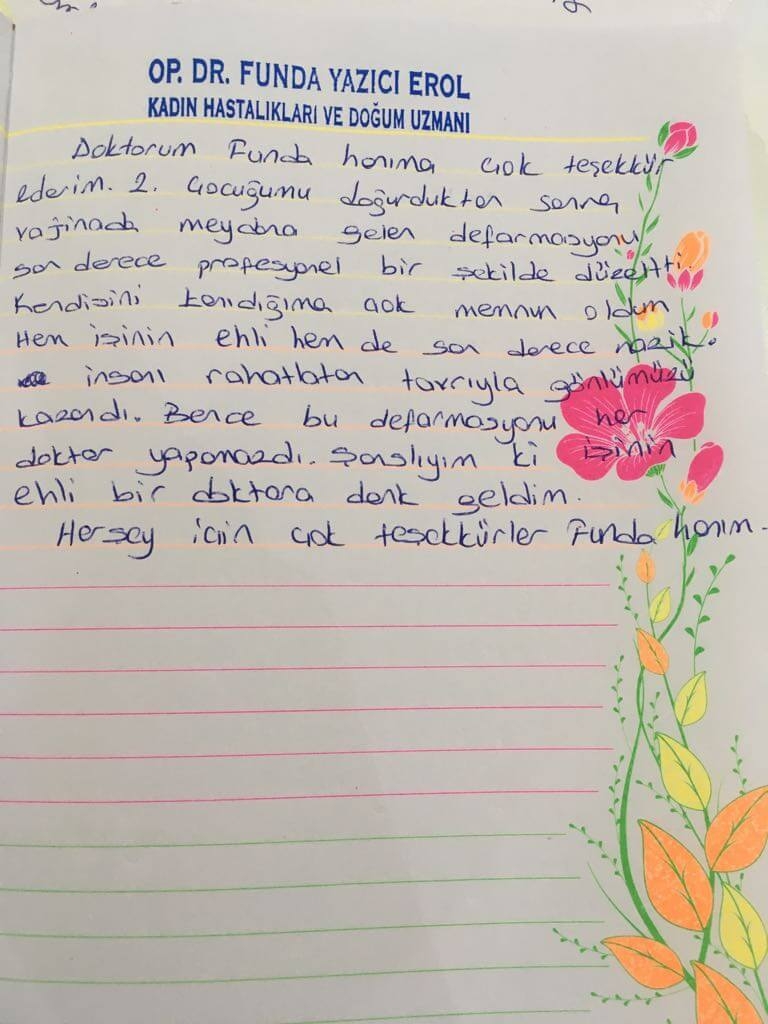 OP. DR. FUNDA YAZICI EROL
KADIN HASTALIKLARI VE DOĞUM UZMANI
Doktorum Funda hanıma çok teşekkür
ederim. 2. çocuğumu doğurduktan sonra
vajinada meydana gelen defarmasyonu
son derece profesyonel bir şekilde düzeltti.
Kendisini tanıdığıma çok memnun oldum
Hem işinin ehli hem de son derece nazik.
insanı rahatlatan tavrıyla gönlümüzü
kazandı. Bence bu defarmasyonu her
doktor yapamazdı. Şanslıyım ki işinin
ehli bir doktora denk geldim.
Herşey için çok teşekkürler Funda hanım.